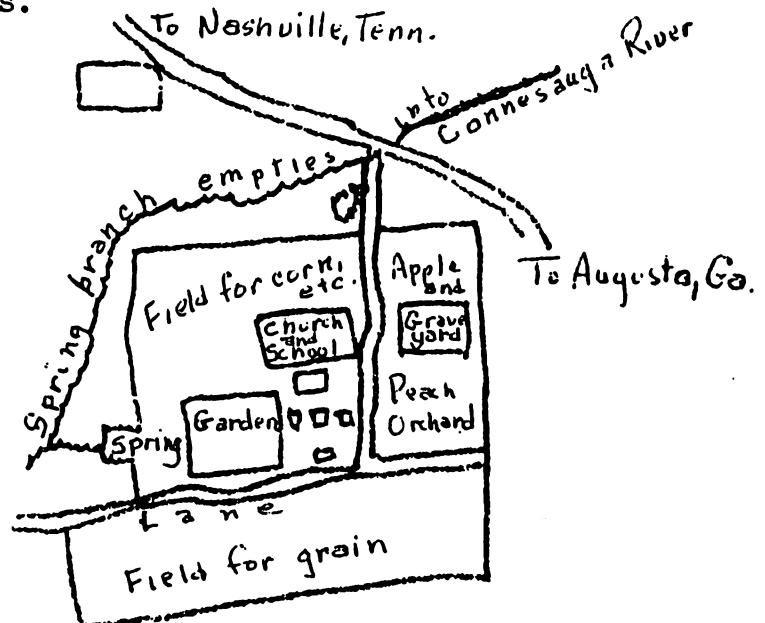 s.
To Nashville, Tenn.
Spring branch empties into Connesauga River
To Augusta, Ga.
Field for corn, etc.
Apple and
Church and School
Grave yard
Peach Orchard
Garden
Spring
Lane
Field for grain